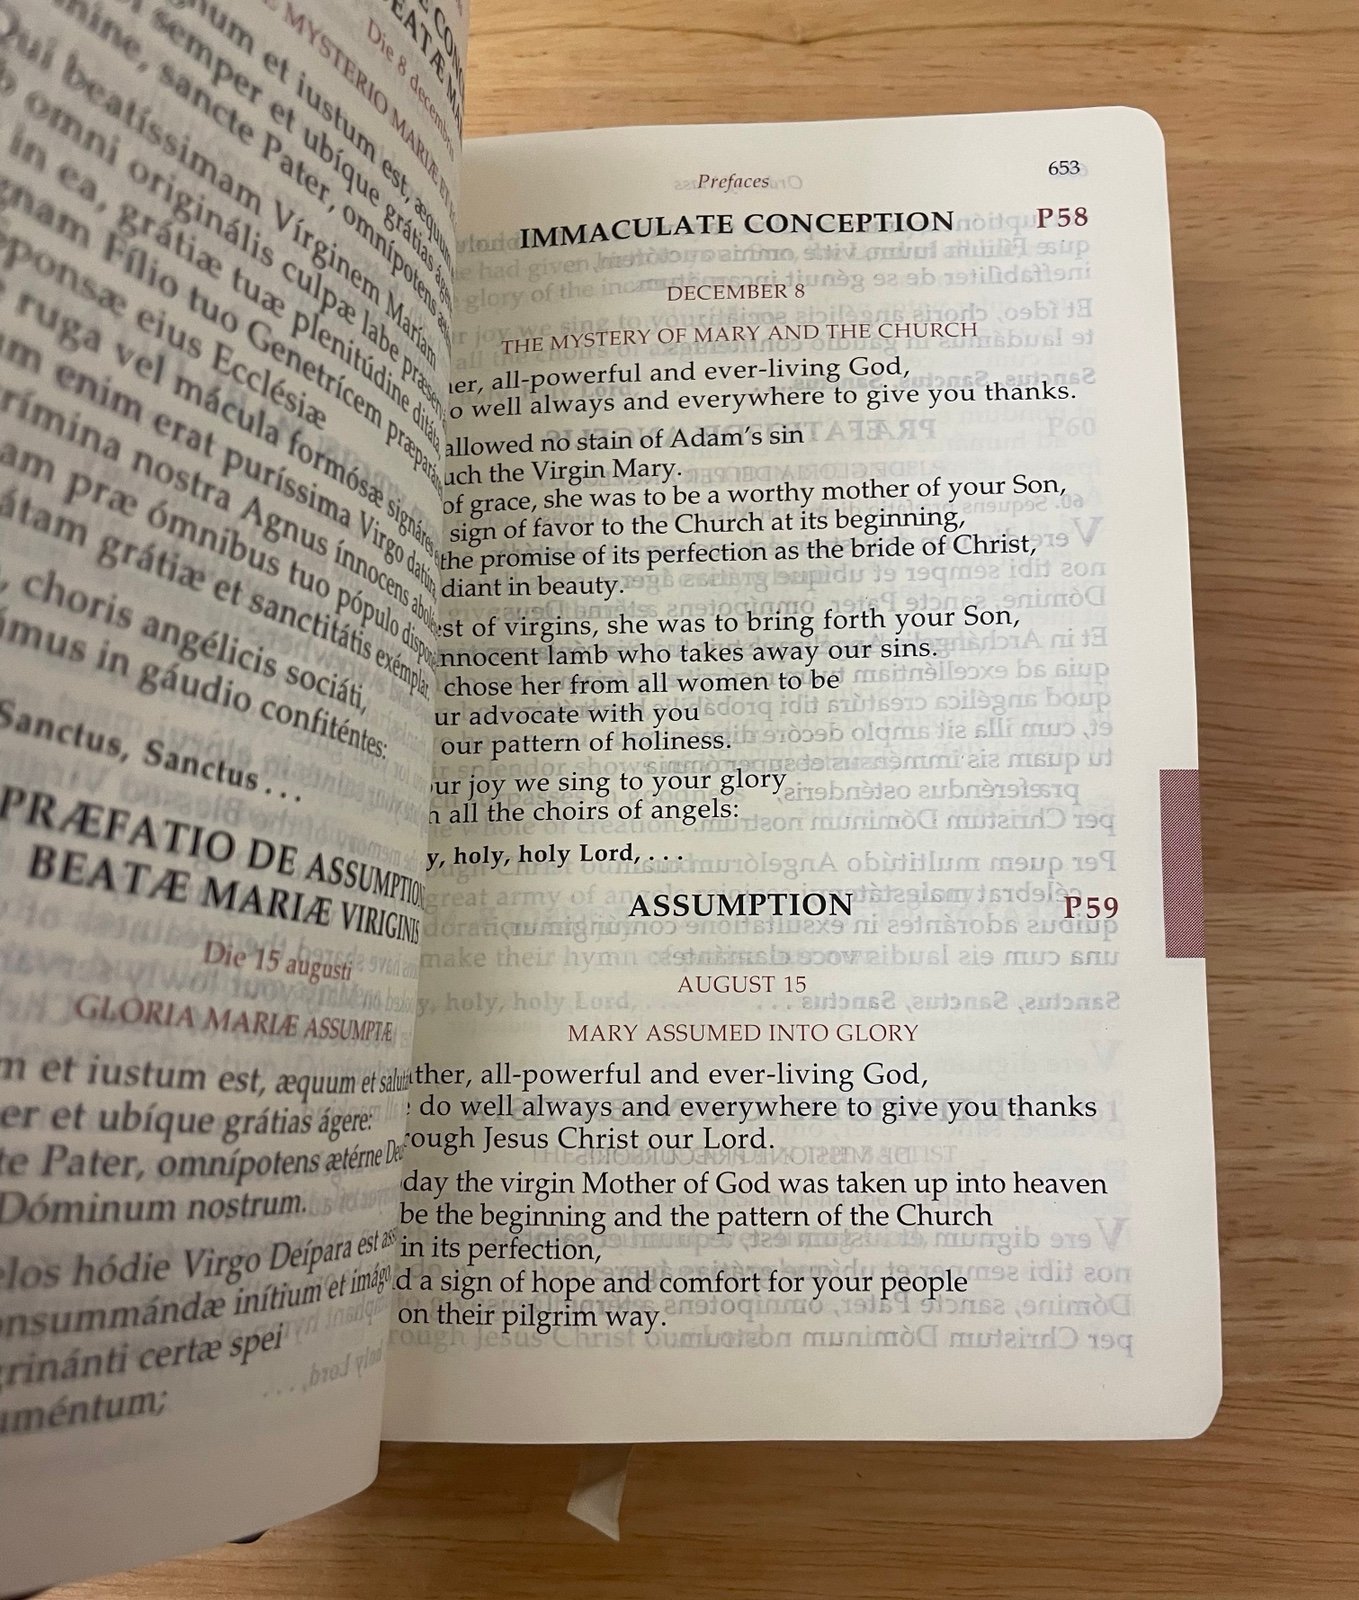 Die 8 decembris
MYSTERIO MARIÆ ET
et iustum est, æquum
semper et ubíque grátias
sancte Pater, omnípotens
Qui beatíssimam Vírginem Maríam
omni originális culpæ labe
in ea, grátiæ tuæ plenitúdine ditáta,
Fílio tuo Genetrícem
eius Ecclésiæ
ruga vel mácula formósæ
enim erat puríssima Virgo
nostra Agnus ínnocens
præ ómnibus tuo pópulo
grátiæ et sanctitátis exémplar
choris angélicis sociáti,
in gáudio confiténtes:
Sanctus, Sanctus . . .
PRÆFATIO DE ASSUMPTION
BEATÆ MARIÆ VIRIGINIS
Die 15 augusti
GLORIA MARIÆ ASSUMPTÆ
et iustum est, æquum et
et ubíque grátias ágere:
Pater, omnípotens ætérne
Dóminum nostrum.
hódie Virgo Deípara est
inítium et
certæ spei
Prefaces 653
IMMACULATE CONCEPTION P58
DECEMBER 8
THE MYSTERY OF MARY AND THE CHURCH
her, all-powerful and ever-living God,
o well always and everywhere to give you thanks.
allowed no stain of Adam's sin
uch the Virgin Mary.
of grace, she was to be a worthy mother of your Son,
sign of favor to the Church at its beginning,
the promise of its perfection as the bride of Christ,
diant in beauty.
est of virgins, she was to bring forth your Son,
nnocent lamb who takes away our sins.
chose her from all women to be
ur advocate with you
our pattern of holiness.
our joy we sing to your glory
h all the choirs of angels:
y, holy, holy Lord, . . .
ASSUMPTION P59
AUGUST 15
MARY ASSUMED INTO GLORY
ather, all-powerful and ever-living God,
do well always and everywhere to give you thanks
rough Jesus Christ our Lord.
day the virgin Mother of God was taken up into heaven
be the beginning and the pattern of the Church
in its perfection,
d a sign of hope and comfort for your people
on their pilgrim way.